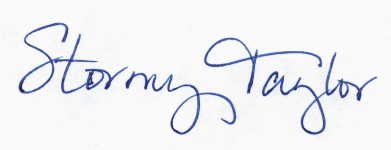 Stormy Taylor